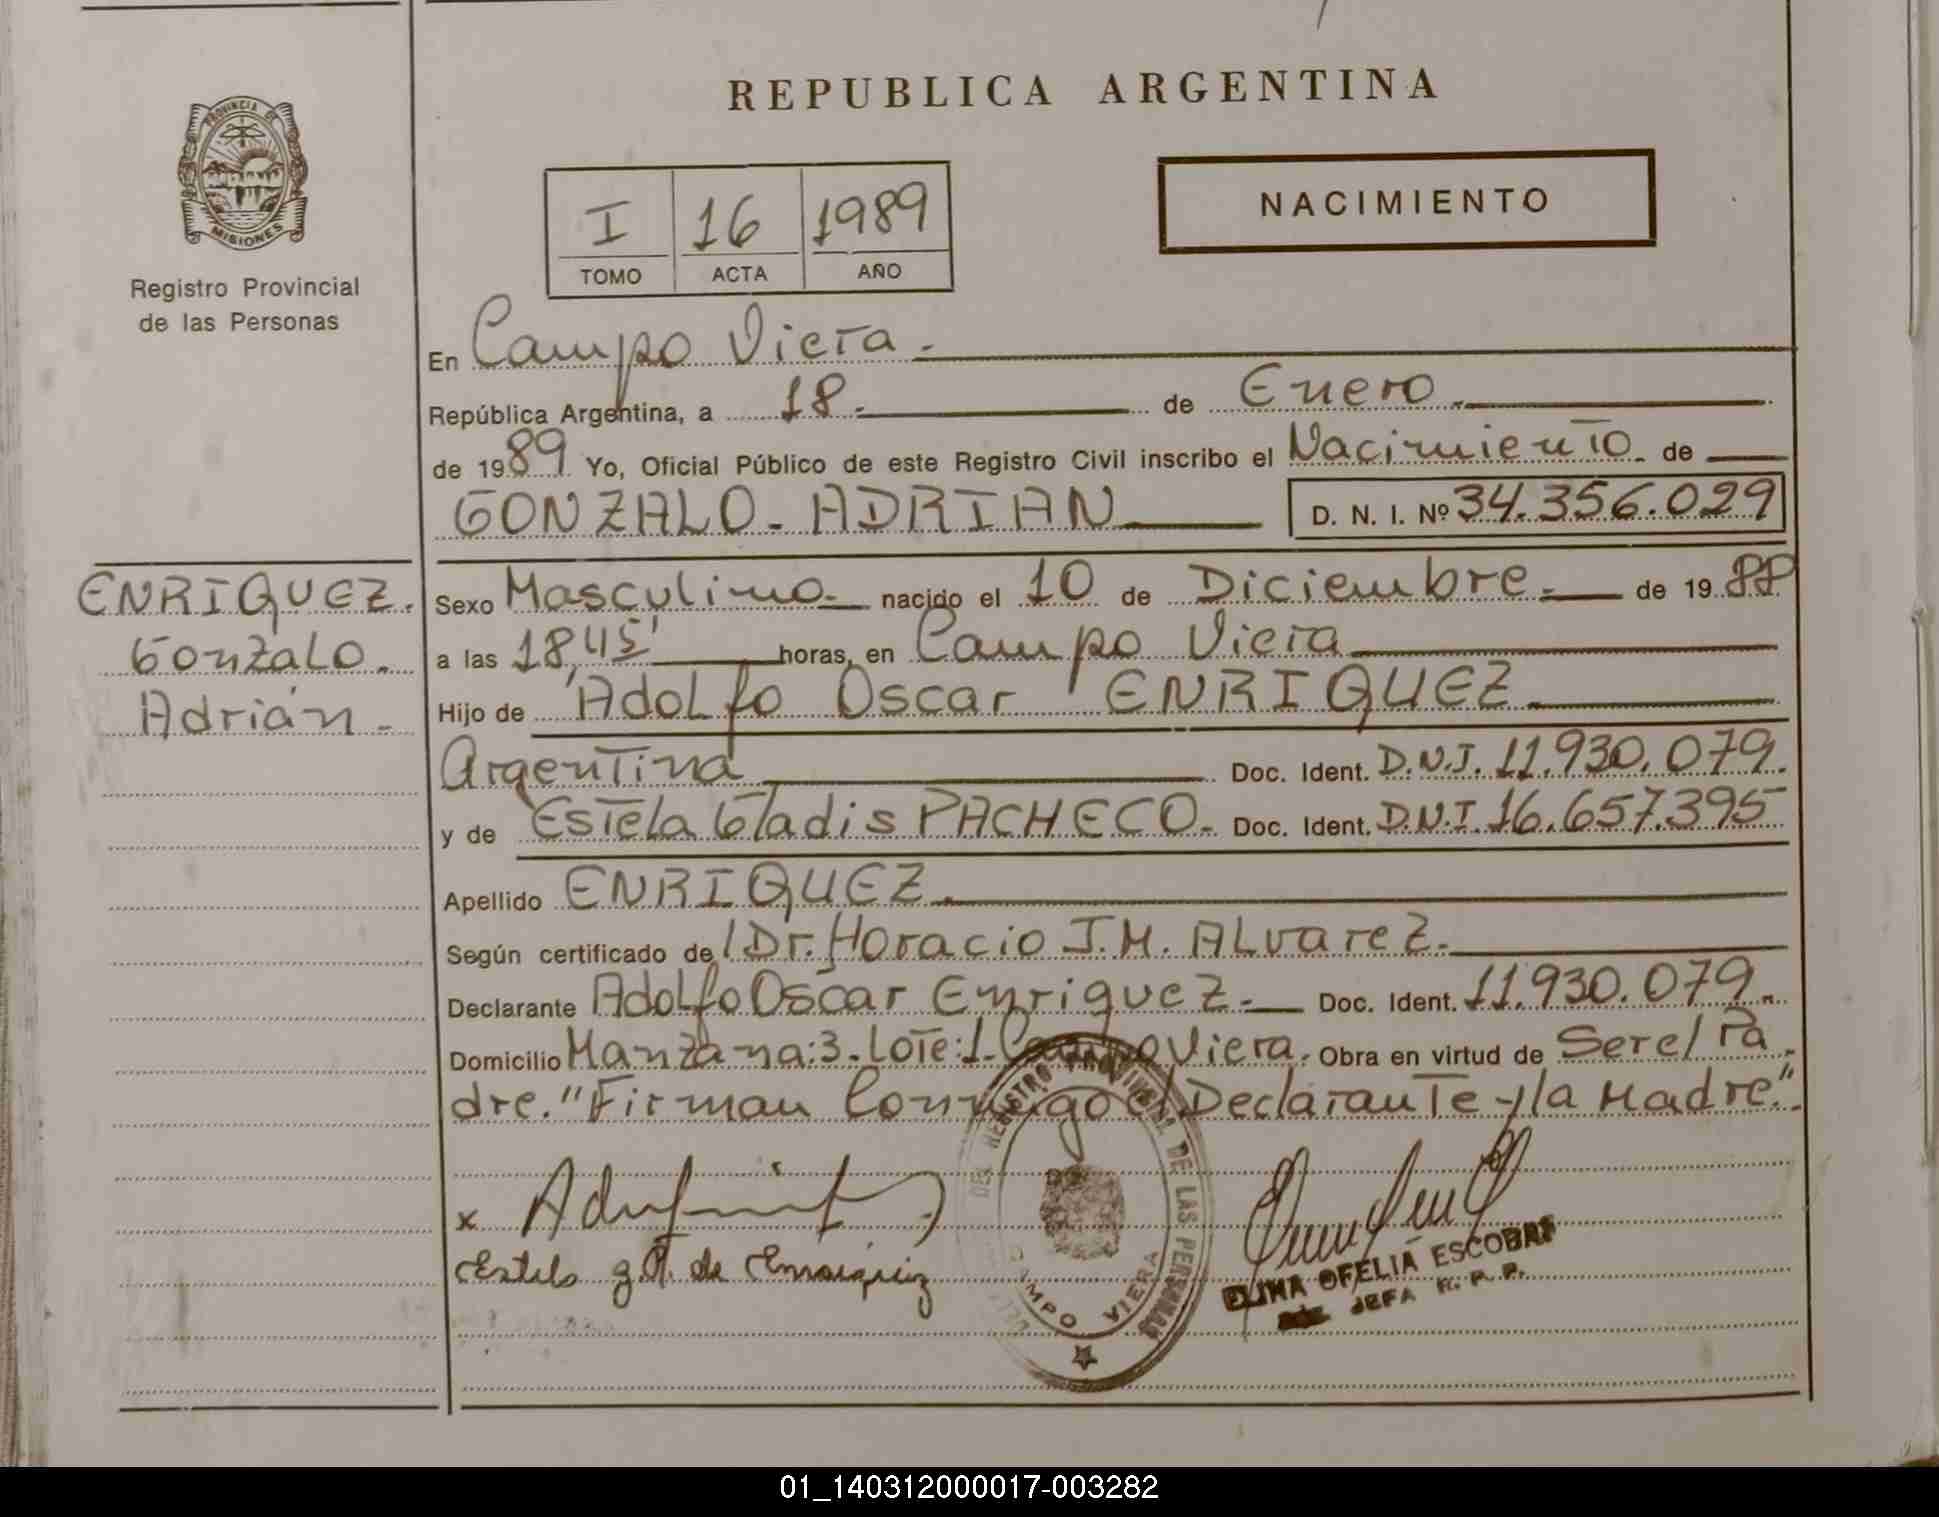 REPUBLICA ARGENTINA
PROVINCIA DE
MISIONES
Registro Provincial
de las Personas
I 16 1989
TOMO ACTA AÑO
NACIMIENTO
En Campo Viera.
República Argentina, a 18. de Enero.
de 1989. Yo, Oficial Público de este Registro Civil inscribo el Nacimiento de
GONZALO. ADRIAN D. N. I. Nº 34.356.029
ENRIQUEZ.
Gonzalo.
Adrián.
Sexo Masculino. nacido el 10 de Diciembre. de 1988
a las 18,45' horas, en Campo Viera
Hijo de Adolfo Oscar ENRIQUEZ.
Argentina Doc. Ident. D.N.I. 11.930.079.
y de Estela Gladis PACHECO. Doc. Ident. D.N.I. 16.657.395
Apellido ENRIQUEZ.
Según certificado del Dr. Horacio J.M. ALvarez.
Declarante Adolfo Oscar Enriquez. Doc. Ident. 11.930.079.
Domicilio Manzana:3. Lote:1. Campo Viera. Obra en virtud de Ser el Pa
dre. "Firman Conmigo el Declarante y la Madre".
x
Estela g. P. de Enriquez
DEL REGISTRO PROVINCIAL DE LAS PERSONAS
CAMPO VIERA
ELINA OFELIA ESCOBAR
JEFA R. P. P.
01_140312000017-003282